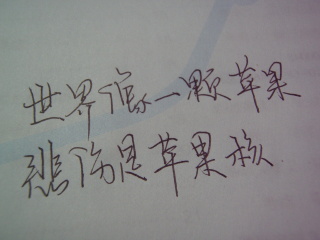 世界像一颗苹果
悲伤是苹果核